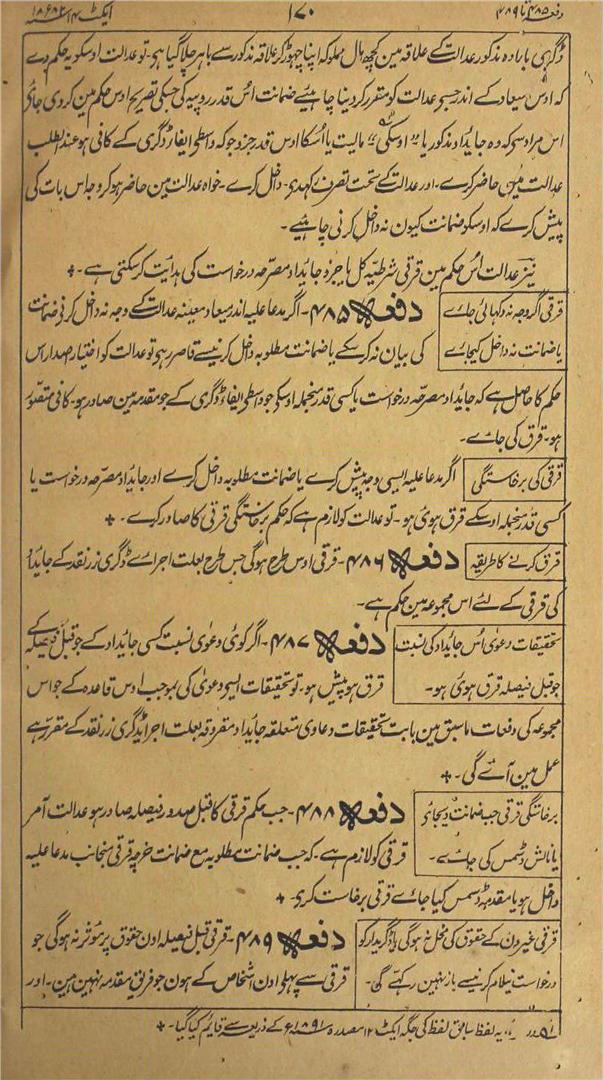 دفعہ ۴۸۵ تا ۴۸۹
۱۷۰
ایکٹ ۱۴ سنہ ۱۸۸۲ء
ڈگری ہا بارادہ مذکور عدالت کے علاقہ مین کچھ مال مملوکہ اپنا چھوڑ کر علاقہ مذکور سے باہر چلا گیا ہی۔ تو عدالت اوسکو یہ حکم دے
کہ اوس میعاد کے اندر جسے عدالت کو مقرر کر دینا چاہئیے ضمانت اُس قدر روپیہ کی جسکی تصریح اوس حکم مین کر دی جائی
اس مراد سے کہ وہ جایداد مذکور یا "اوسکی" مالیت یا اُسکا اوس قدر جزو جو کہ واسطی ایفاء ڈگری کے کافی ہو عندالطلب
عدالت مین حاضر کرے۔ اور عدالت کے تحت تصرف رکھدے۔ داخل کرے۔ خواہ عدالت مین حاضر ہو کر وجہ اس بات کی
پیش کرے کہ اوسکو ضمانت کیون نہ داخل کرنی چاہئیے۔
نیز عدالت اُس حکم مین قرقی شرطیہ کل یا جزو جایداد مصرحہ درخواست کی ہدایت کر سکتی ہے۔ +
قرقی اگر وجہ نہ دکھائی جاے
یا ضمانت نہ داخل کیجاے
دفعہ ۴۸۵۔ اگر مدعا علیہ اندر میعاد معینہ عدالت کے وجہ نہ داخل کرنی ضمانت
کی بیان نہ کر سکے یا ضمانت مطلوبہ داخل کرنیسے قاصر رہی تو عدالت کو اختیار صدار اس
حکم کا حاصل ہے کہ جایداد مصرحہ درخواست یا کسی قدر منجملہ اوسکی جو واسطی ایفاء ڈگری کے جو مقدمہ مین صادر ہو۔ کافی متصور
ہو۔ قرق کی جاے۔
قرقی کی برخاستگی
اگر مدعا علیہ ایسی وجہ پیش کرے یا ضمانت مطلوبہ داخل کرے اور جایداد مصرحہ درخواست یا
کسی قدر منجملہ اوسکے قرق ہوئی ہو۔ تو عدالت کو لازم ہے کہ حکم برخاستگی قرقی کا صادر کرے۔ +
قرق کرنے کا طریقہ
دفعہ ۴۸۶۔ قرقی اوس طرح ہوگی جس طرح بعلت اجراے ڈگری زر نقد کے جایداد
کی قرقی کے لئے اس مجموعہ مین حکم ہے۔
تحقیقات دعوی اُس جایداد کی نسبت
جو قبل فیصلہ قرق ہوئی ہو۔
دفعہ ۴۸۷۔ اگر کوئی دعوی نسبت کسی جایداد کے جو قبل فیصلہ کے
قرق ہو پیش ہو۔ تو تحقیقات ایسی دعوی کی بموجب اوس قاعدہ کے جو اس
مجموعہ کی دفعات ماسبق مین بابت تحقیقات دعاوی متعلقہ جایداد مقروقہ بعلت اجراے ڈگری زر نقد کے مقرر ہے
عمل مین آے گی۔ +
برخاستگی قرقی جب ضمانت دیجائی
یا نالش ڈسمس کی جاے۔
دفعہ ۴۸۸۔ جب حکم قرقی کا قبل صدور فیصلہ صادر ہو عدالت آمر
قرقی کو لازم ہے۔ کہ جب ضمانت مطلوبہ مع ضمانت خرچہ قرقی منجانب مدعا علیہ
داخل ہو یا مقدمہ ڈسمس کیا جاے قرقی برخاست کری۔ +
قرقی غیرون کے حقوق کی مخل نہ ہوگی یا ڈگریدار کو
درخواست نیلام کرنیسے باز نہین رکھے گی۔
دفعہ ۴۸۹۔ قرقی قبل فیصلہ اون حقوق پر موثر نہ ہوگی جو
قرقی سے پہلی اون اشخاص کے ہون جو فریق مقدمہ نہین ہین۔ اور
یہ لفظ سابق لفظ کی جگہ ایکٹ ۱۲ مصدرہ سنہ ۱۸۹۱ء کے ذریعہ سے قایم کیا گیا۔ +